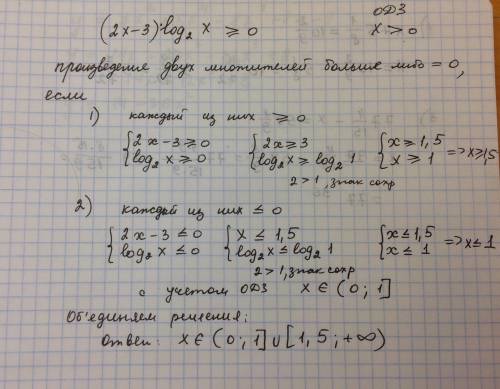 ОДЗ
(2x-3)·log₂ x ≥ 0     x > 0
произведение двух множителей больше либо = 0,
если
1) каждый из них ≥ 0
{2x-3≥0   {2x≥3   {x≥1,5
{log₂ x≥0   {log₂ x≥log₂ 1   {x≥1   =>x≥1,5
2>1, знак сохр
2) каждый из них ≤ 0
{2x-3≤0   {x≤1,5   {x≤1,5
{log₂ x≤0   {log₂ x≤log₂ 1   {x≤1   =>x≤1
2>1, знак сохр
с учетом ОДЗ x∈(0;1]
Об'единяем решения:
Ответ: x∈(0;1]∪[1,5;+∞)